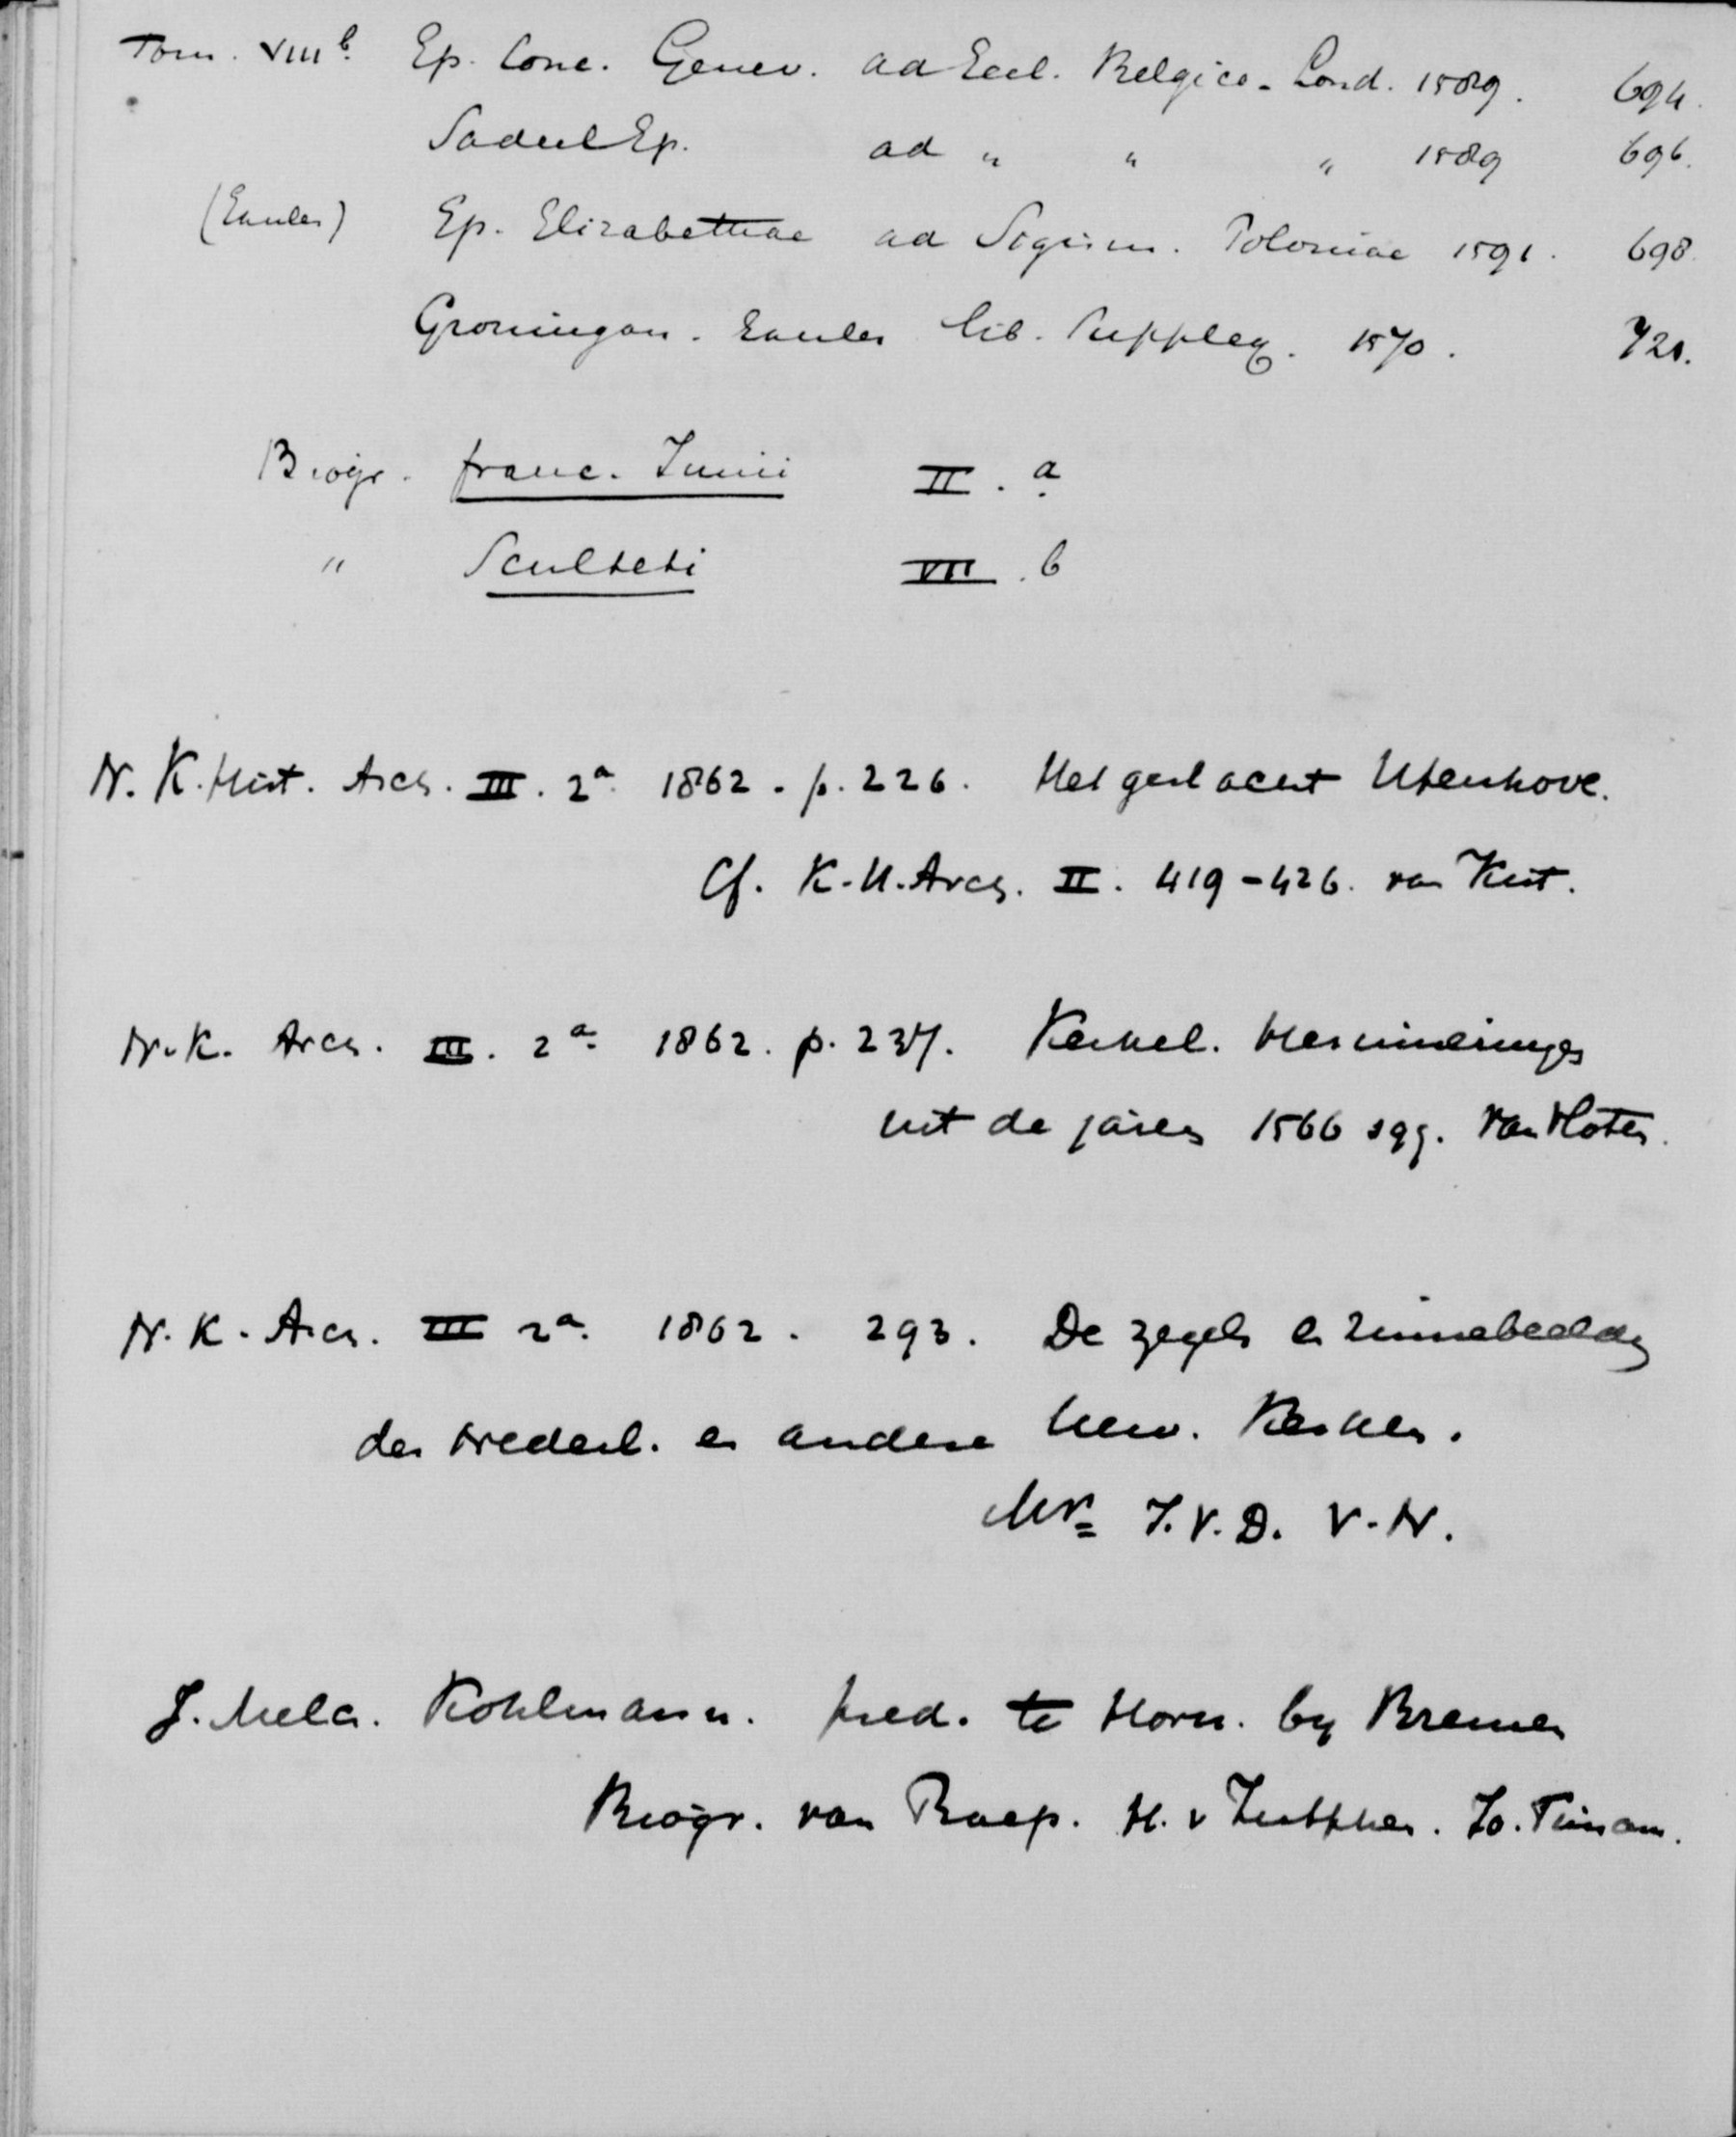 Tom. VIII b. Ep. Conc. Genev. ad Eccl. Belgico-Lond. 1589. 694.
Sadeel Ep. ad " " " 1589 696.
(Emder) Ep. Elizabethae ad Sigism. Poloniae 1591. 698.
Groningan. Emder lib. Suppleq. 1570. 720.
Biogr. Franc. Junii II. a.
" Sculteti VII. b
N. K. Hist. Arch. III. 2a. 1862. p. 226. Het geslacht Utenhove.
Cf. K. H. Arch. II. 419-426. van Kist.
N. K. Arch. III. 2a. 1862. p. 237. Kerkel. Herinneringen
uit de jaren 1566 sqq. Van Vloten.
N. K. Arch. III 2a. 1862. 293. De zegels en zinnebeelden
der Nederl. en andere herv. Kerken.
Mr. J. V. D. V. N.
J. Melch. Kohlmann. pred. te Horn. by Bremen
Biogr. van Praep. H. v Zutphen. Jo. Timam.